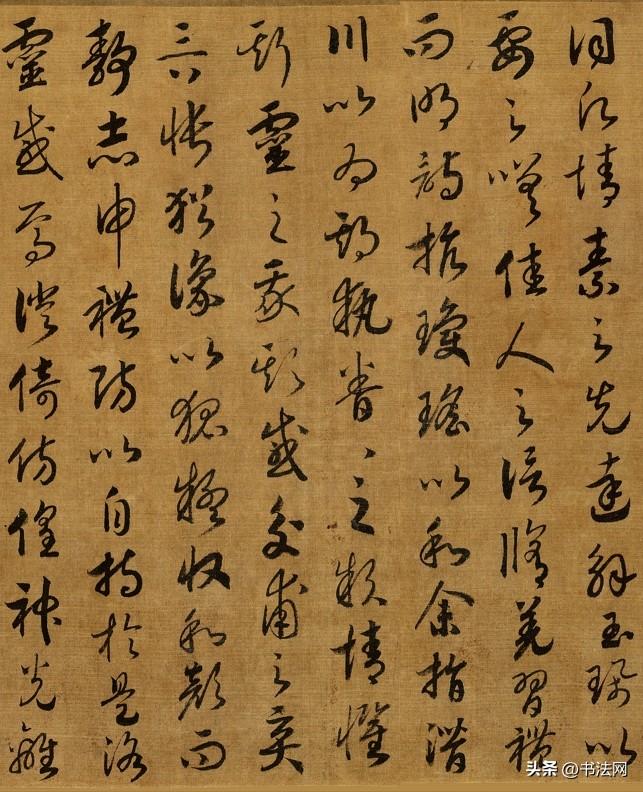 情素之先達解玉珮以
要之嗟佳人之信脩羌習禮
而明詩抗瓊瑤以和余指潛
川以為期執眷〻之款情懼
斯靈之我欺感交甫之棄
言悵猶豫以狐疑收和顏而
静志申禮防以自持於是洛
靈感焉徙倚傍偟神光離
头条 @书法网